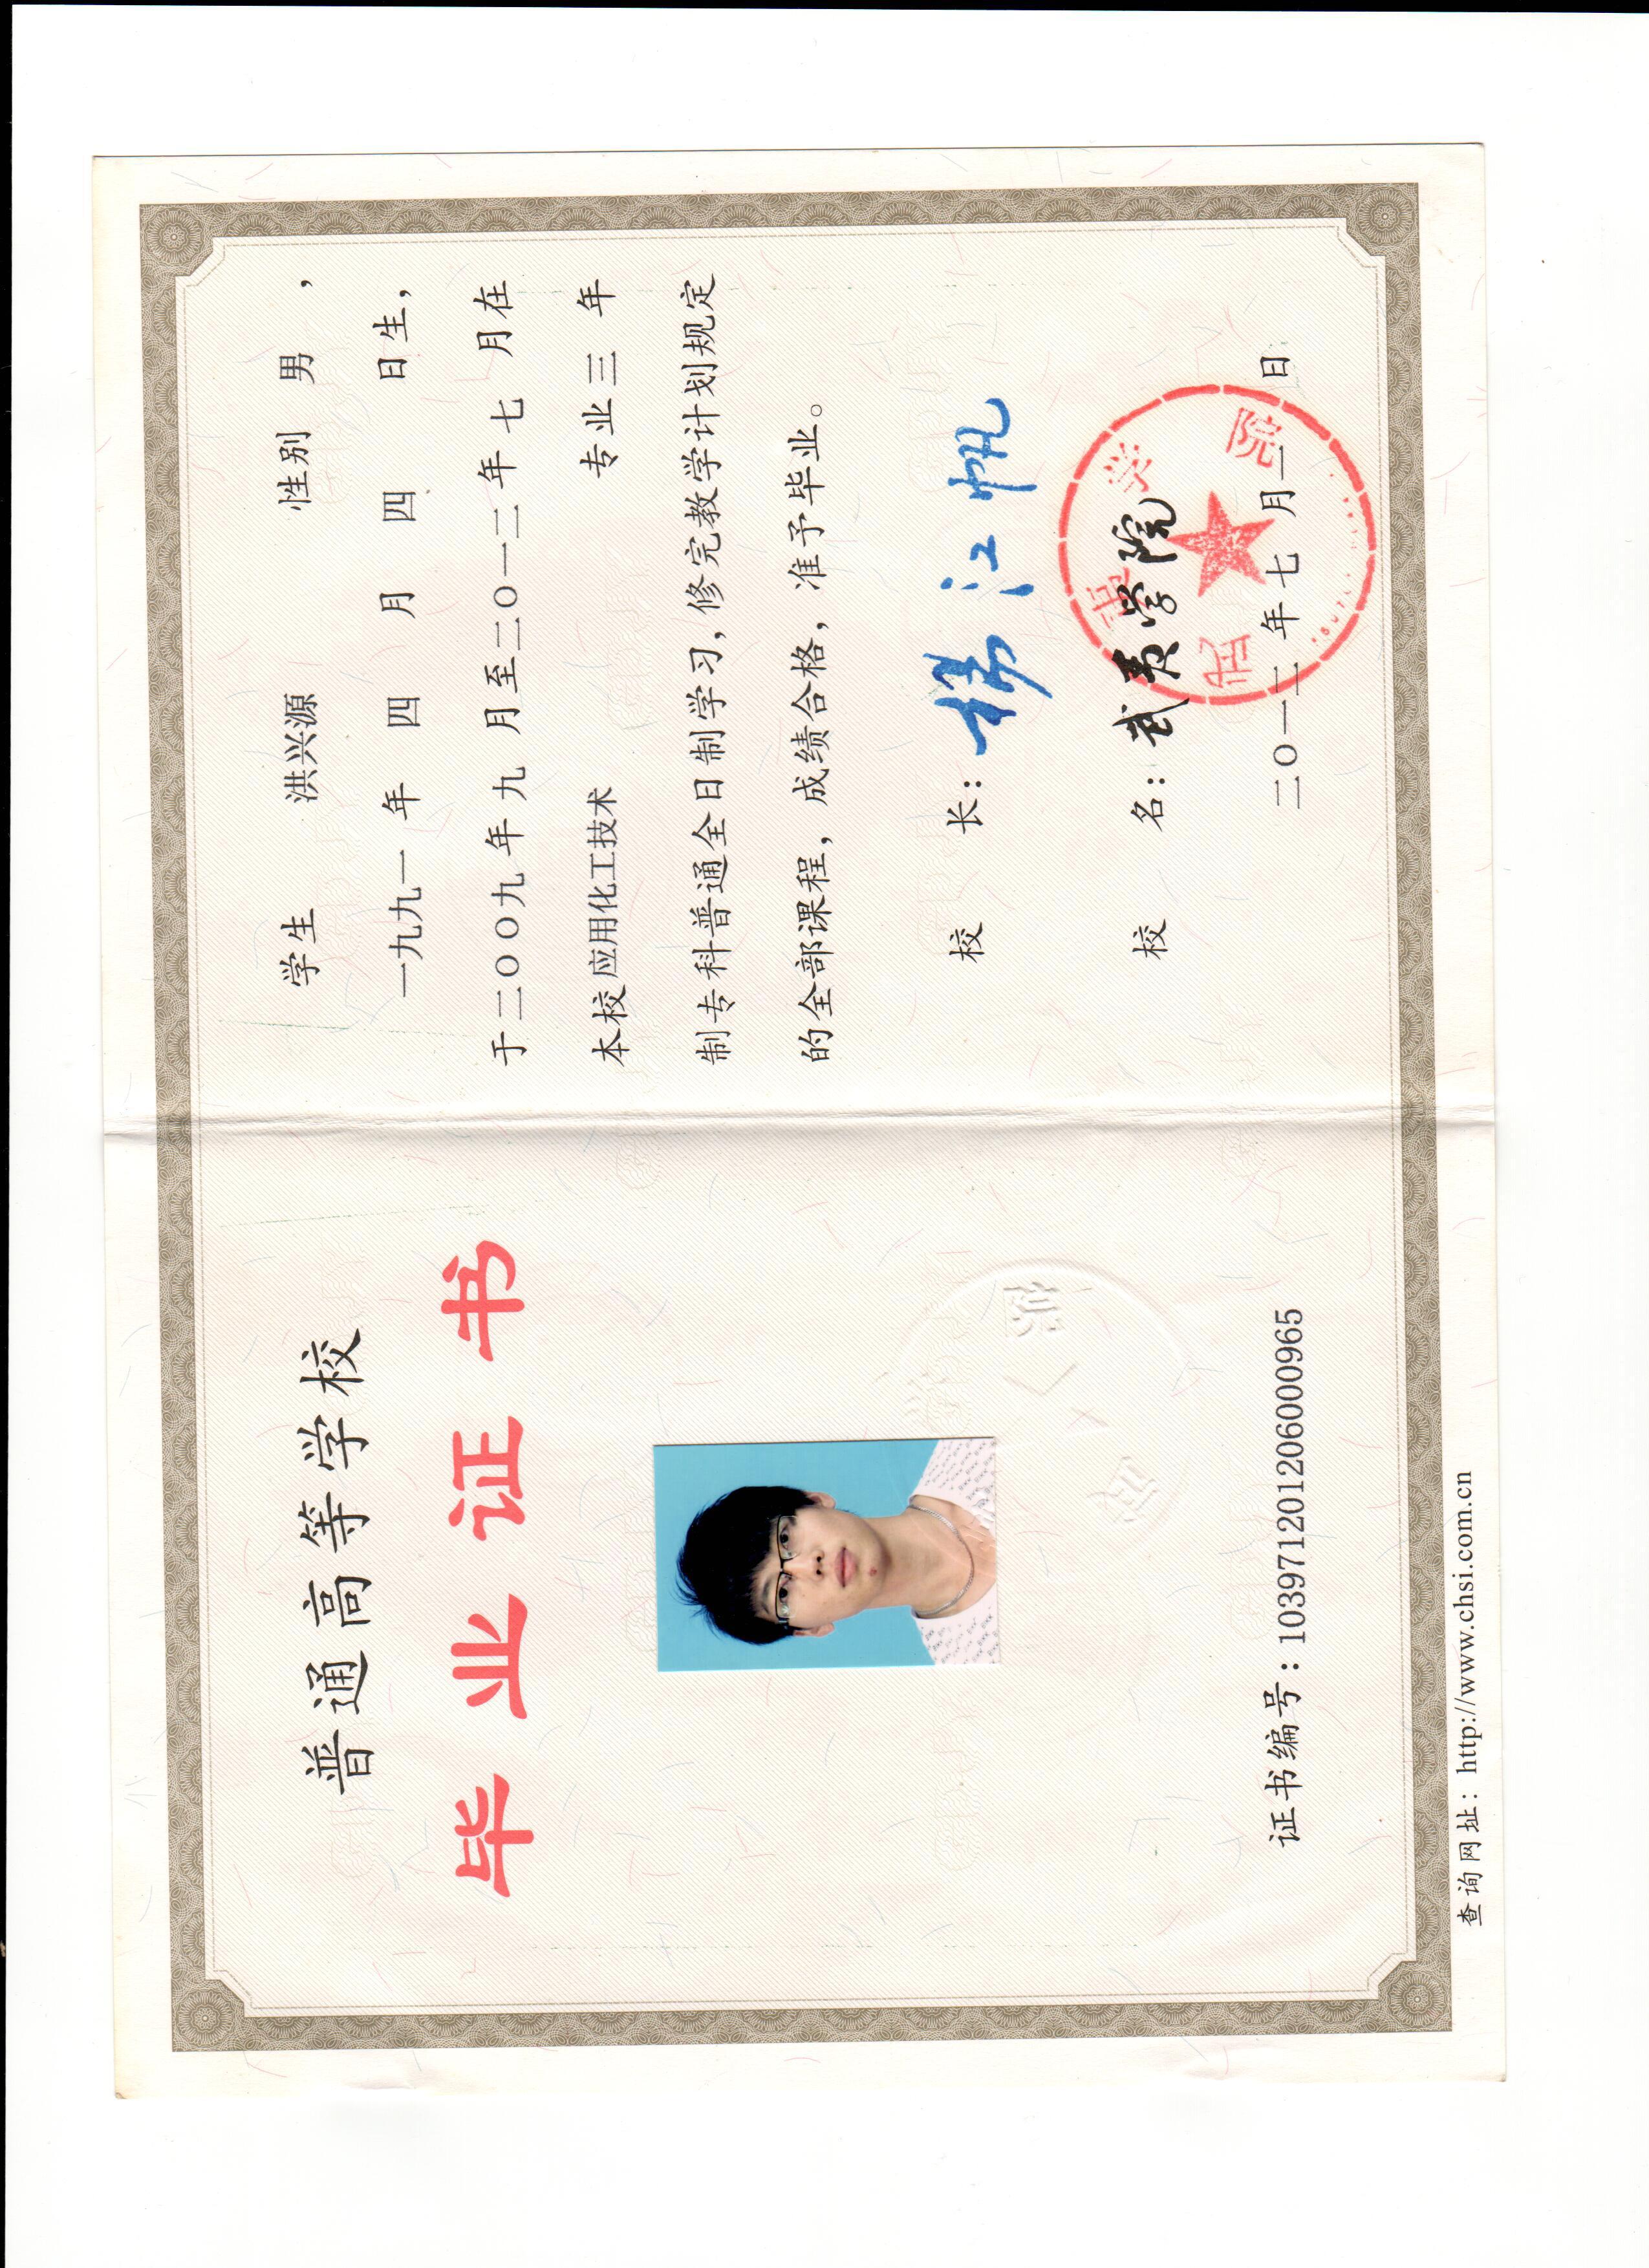 普通高等学校
毕业证书
证书编号：103971201206000965
学生 洪兴源 性别 男，
一九九一年 四 月 四 日生，
于二〇〇九年九月至二〇一二年七月在
本校应用化工技术 专业三年
制专科普通全日制学习，修完教学计划规定
的全部课程，成绩合格，准予毕业。
校 长：杨江帆
校 名：武夷学院
武夷学院
二〇一二年七月一日
查询网址：http://www.chsi.com.cn